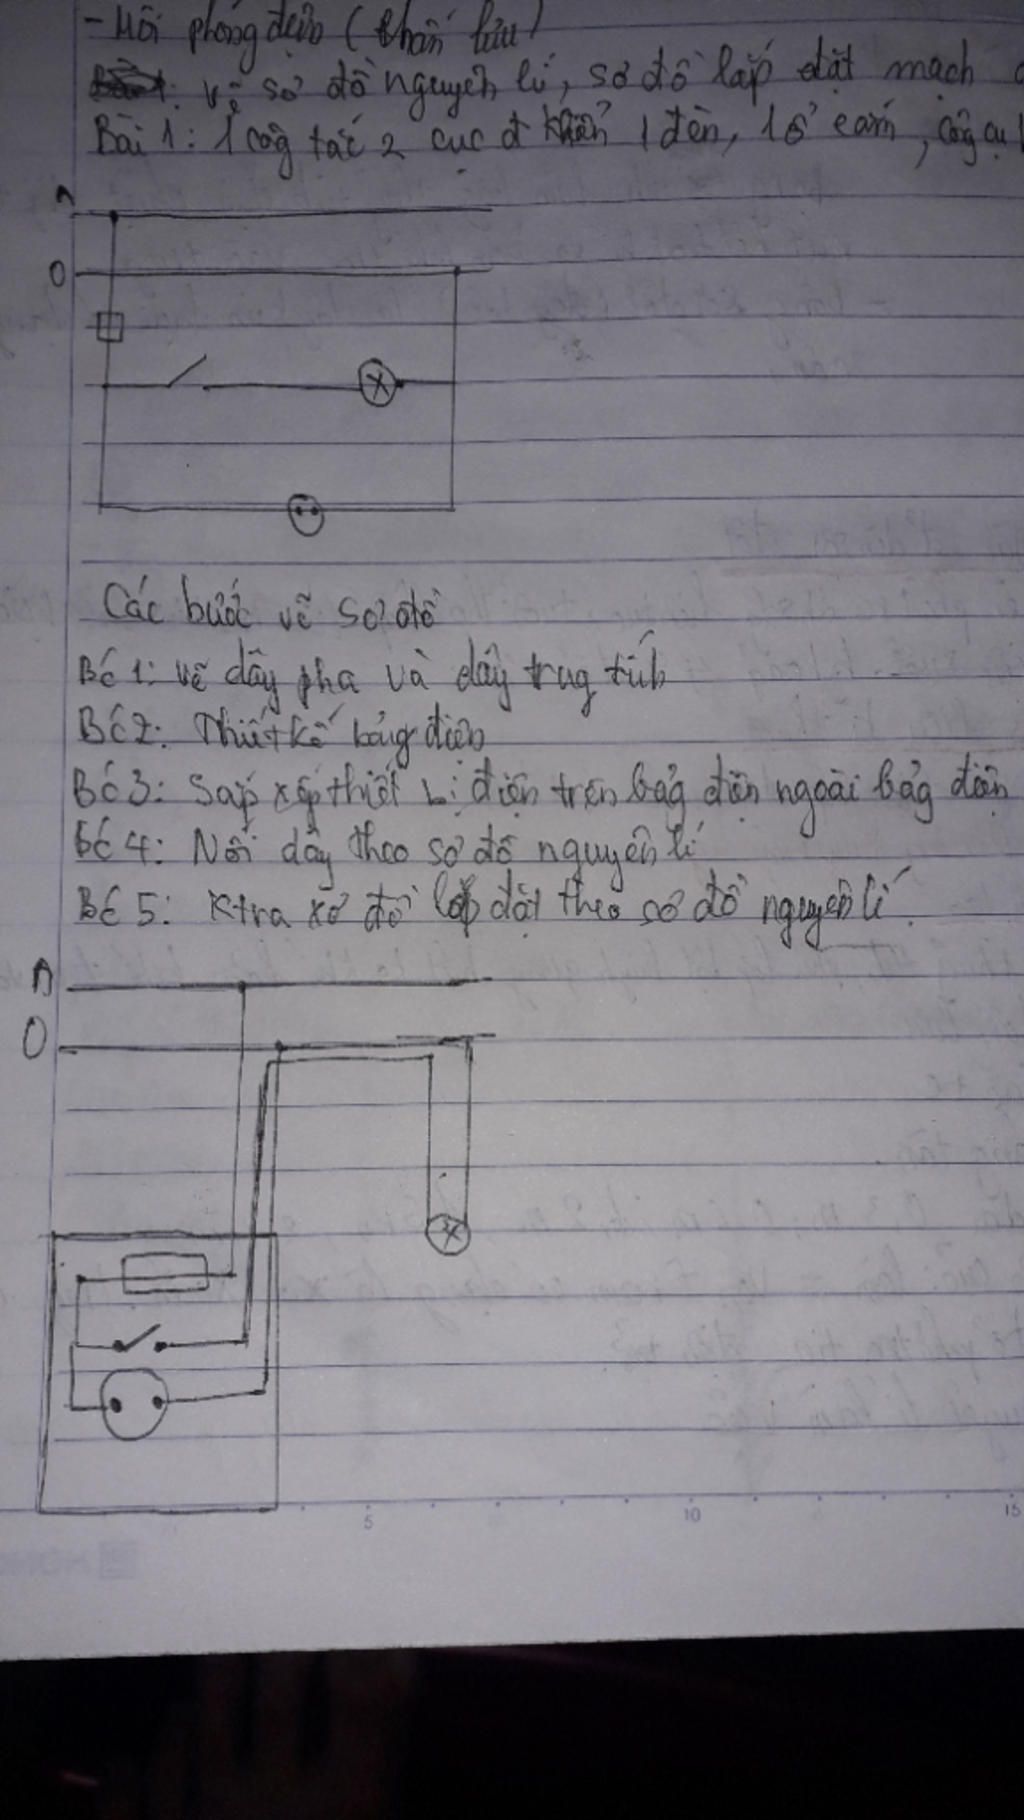 - Mồi phóng điện (chấn lưu)
vẽ sơ đồ nguyên lí, sơ đồ lắp đặt mạch
Bài 1: 1 côg tắc 2 cực đ khiển 1 đèn, 1 ổ cắm,
A
O
Các bước vẽ sơ đồ
BC 1: vẽ dây pha và dây trug tính
BC 2: Thiết kế bảng điện
BC 3: Sắp xếp thiết bị điện trên bảg điện ngoài bảg điện
BC 4: Nối dây theo sơ đồ nguyên lí
BC 5: Ktra xơ đồ lắp đặt theo sơ đồ nguyên lí.
A
O
5 10 15